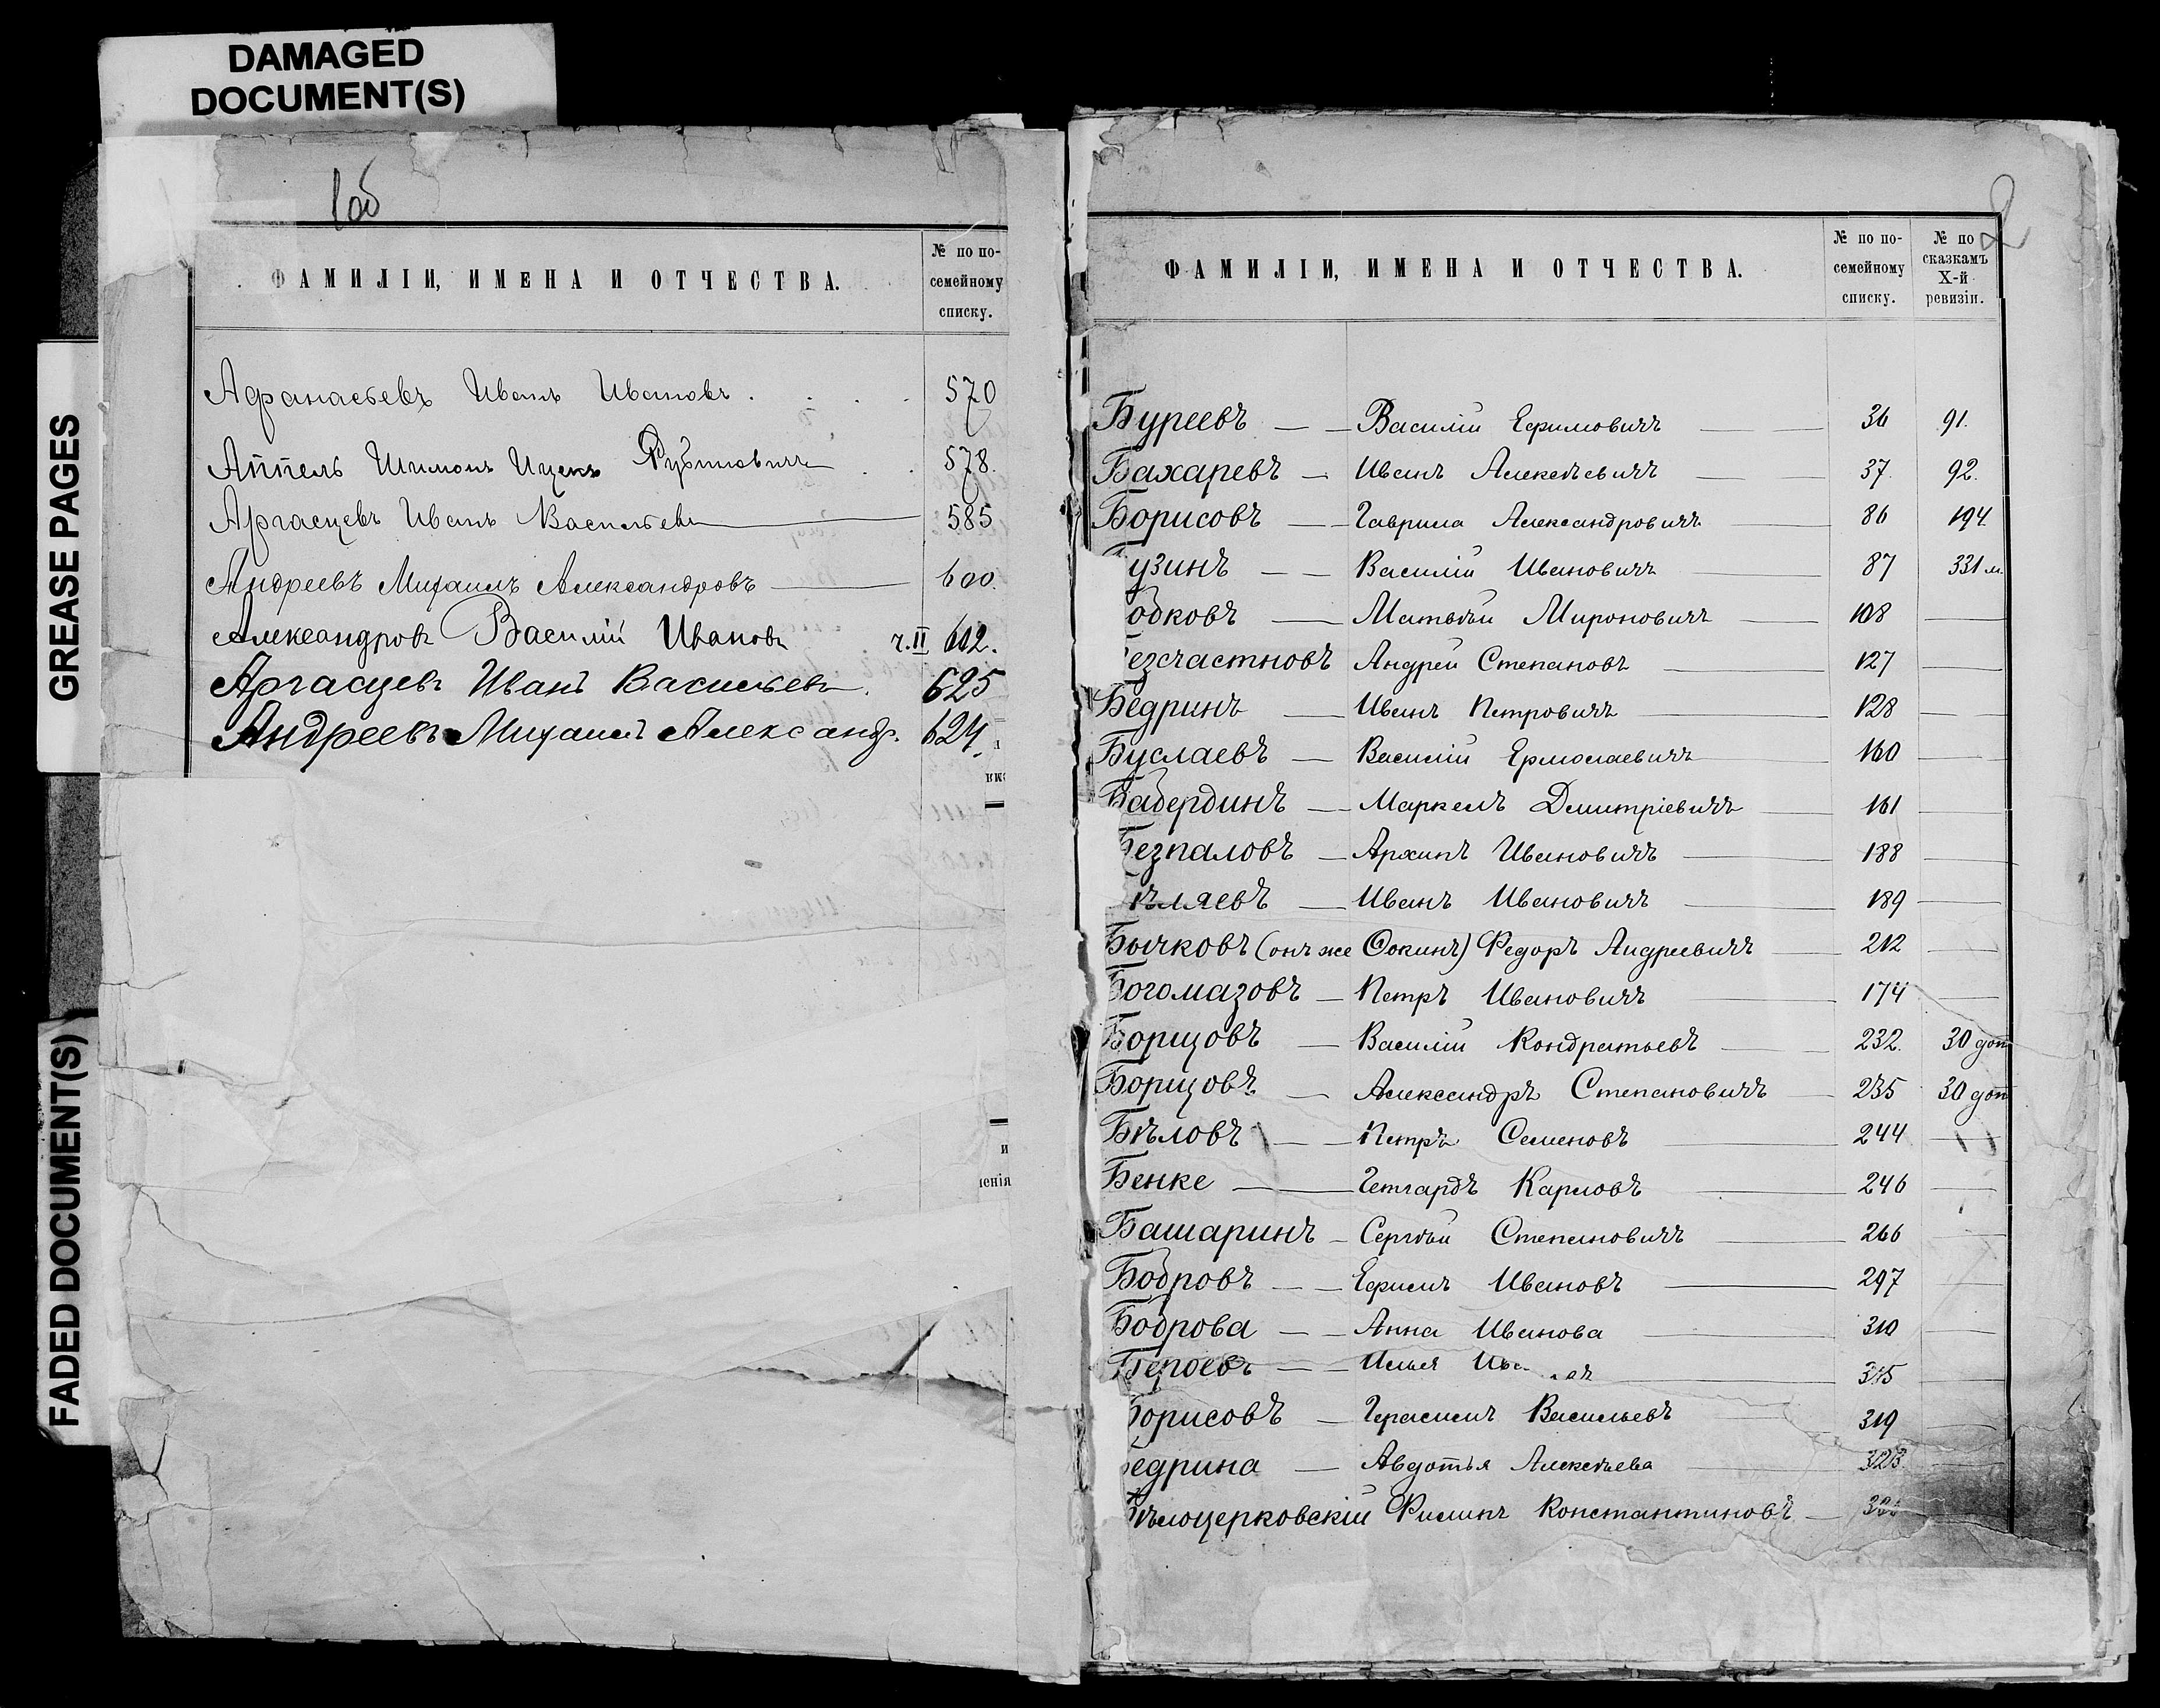 DAMAGED
DOCUMENT(S)
GREASE PAGES
FADED DOCUMENT(S)
1об
ФАМИЛІИ, ИМЕНА И ОТЧЕСТВА.
№ по по-
семейному
списку.
Афанасьевъ Иванъ Ивановъ . . . . 570
Аппель Шимонъ Ицекъ Рубиновичъ . . 578.
Аргасцевъ Иванъ Васильевъ 585
Андреевъ Михаилъ Александровъ 600.
Александровъ Василій Ивановъ ч. II 612.
Аргасцевъ Иванъ Васильевъ. 625
Андреевъ Михаилъ Александр. 624.
и
ленія
2
ФАМИЛІИ, ИМЕНА И ОТЧЕСТВА.
№ по по-
семейному
списку.
№ по
сказкамъ
X-й
ревизіи.
Буреевъ — — Василій Ефимовичъ — 36 91.
Бахаревъ — Иванъ Алексѣевичъ — 37. 92.
Борисовъ — Гаврила Александровичъ — 86 194
узинъ — — Василій Ивановичъ — 87 331 м.
одковъ — Матвѣй Мироновичъ — 108 —
езсчастновъ Андрей Степановъ — 127 —
Бедринъ — Иванъ Петровичъ — 128 —
Буслаевъ — Василій Ермолаевичъ — 160 —
Бабердинъ — Маркелъ Дмитріевичъ — 161 —
Безпаловъ — Архипъ Ивановичъ — 188 —
ѣляевъ — Иванъ Ивановичъ — 189 —
Бычковъ (онъ же Ѳокинъ) Федоръ Андреевичъ — 212 —
Богомазовъ — Петръ Ивановичъ — 174 —
Борщовъ — Василій Кондратьевъ — 232. 30 доп
Борщовъ — Александръ Степановичъ — 235 30 доп
Бѣловъ — — Петръ Семеновъ — 244 —
Бенке — Гетгардъ Карловъ — 246 —
Башаринъ — Сергѣй Степановичъ — 266 —
Бобровъ — — Ефимъ Ивановъ — 297 —
Боброва — — Анна Иванова — 310 —
Бероевъ — — Илья — 315 —
Борисовъ — Герасимъ Васильевъ — 319 —
едрина — Авдотья Алексѣева — 323 —
Бѣлоцерковскій Филипъ Константиновъ —